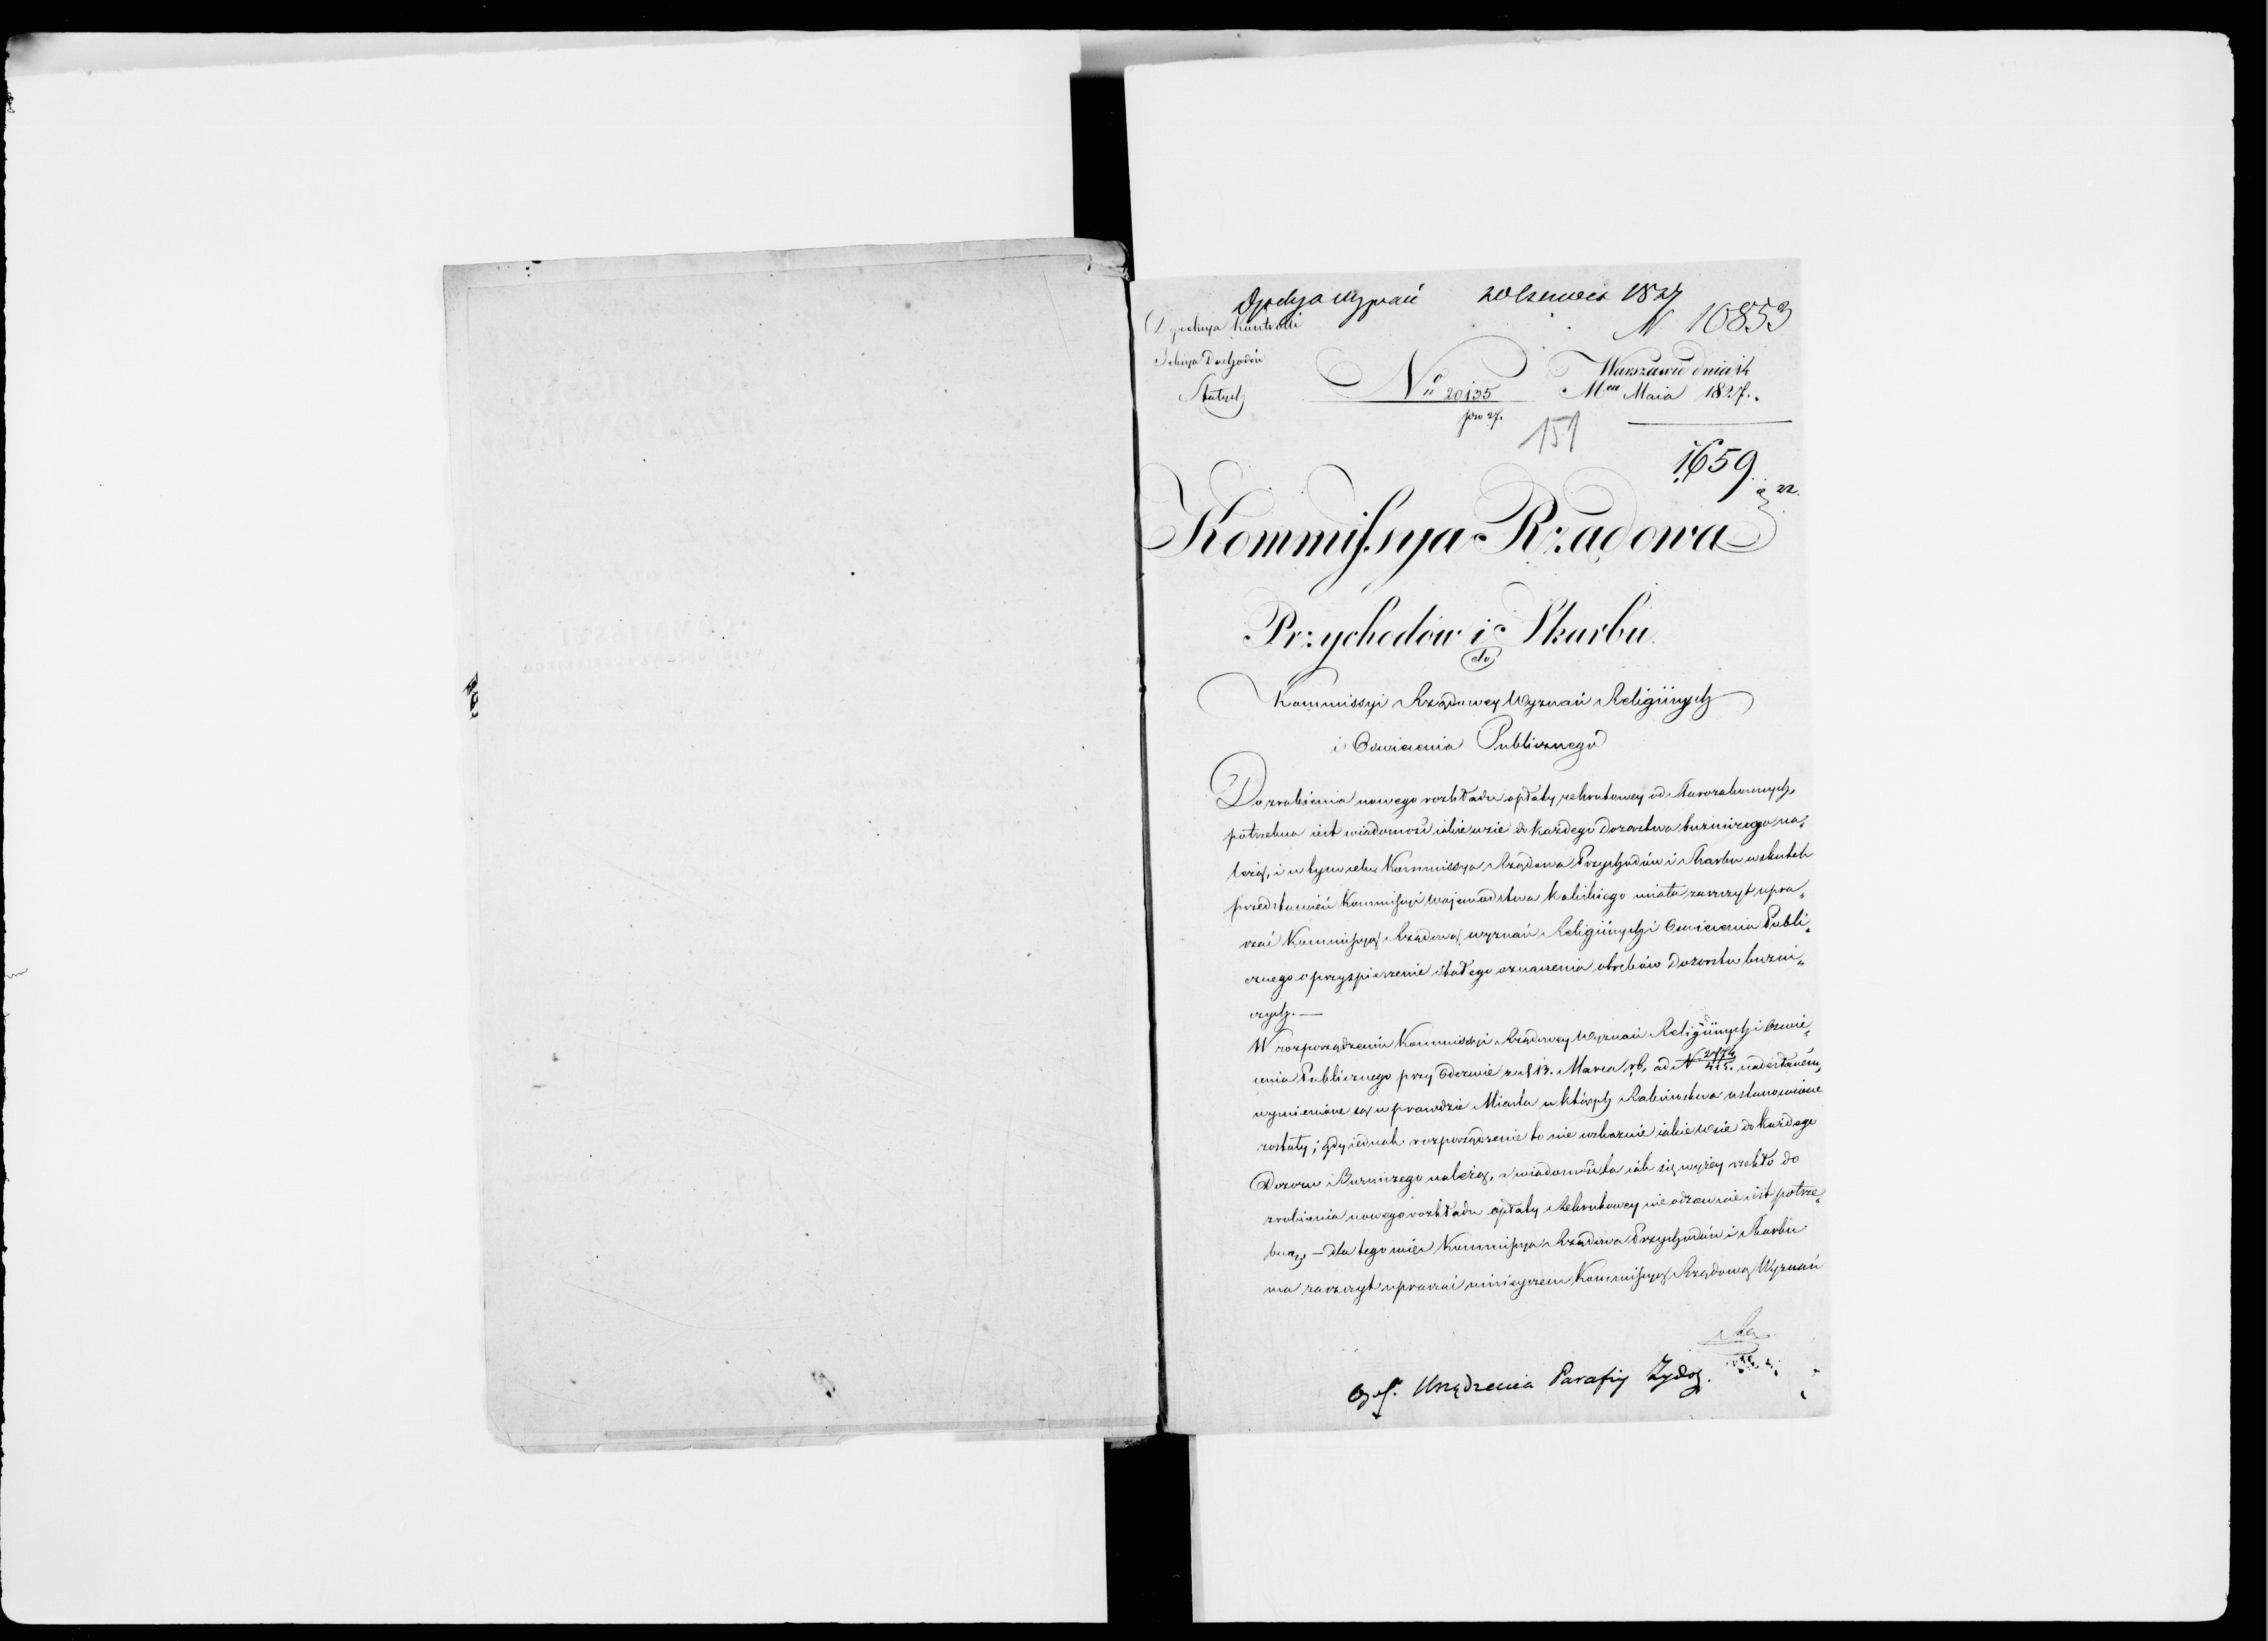 Dyrekcya Wyznań 20 Czerwca 1827
Dyrekcya Kontrolli
N 10853
Sekcya Dochodów
Stałych
Warszawie dnia
Nº 20135
Mca Maia 1827.
pro 27.
151
1659
Kommissya Rządowa
Przychodów i Skarbu
do
Kommissyi Rządowey Wyznań Religiinych
i Oswiecenia Publicznego
Do zrobienia nowego rozkładu opłaty rekrutowey od Starozakonnych,
potrzebna iest wiadomość iakie wsie do każdego Dozorstwa bużniczego na„
leżą, i w tym celu Kommissya Rządowa Przychodów i Skarbu w skutek
przedstawień Kommissyi Woiewództwa Kaliskiego miała zaszczyt upra„
szać Kommissyą Rządową Wyznań Religiinych i Oswiecenia Publi„
cznego o przyspieszenie stałego oznaczenia obrębów Dozorstw bużni„
czych. —
W rozporządzeniu Kommissyi Rządowey Wyznań Religiinych i Oswie„
cenia Publicznego przy Odezwie z d. 13. Marca r.b. ad N 2774/415. nadesłaném,
wymienione są wprawdzie Miasta w których Rabinostwa ustanowione
zostały; gdy iednak rozporządzenie to nie wskazuie iakie wsie do każdego
Dozoru Bużniczego należą, a wiadomość ta iak się wyżey rzekło do
zrobienia nowego rozkładu opłaty Rekrutowey nieodzownie iest potrze„
bną, — dla tego więc Kommissya Rządowa Przychodów i Skarbu
ma zaszczyt upraszać ninieyszem Kommissyą Rządową Wyznań
Re
Urządzenia Parafiy Żydos.